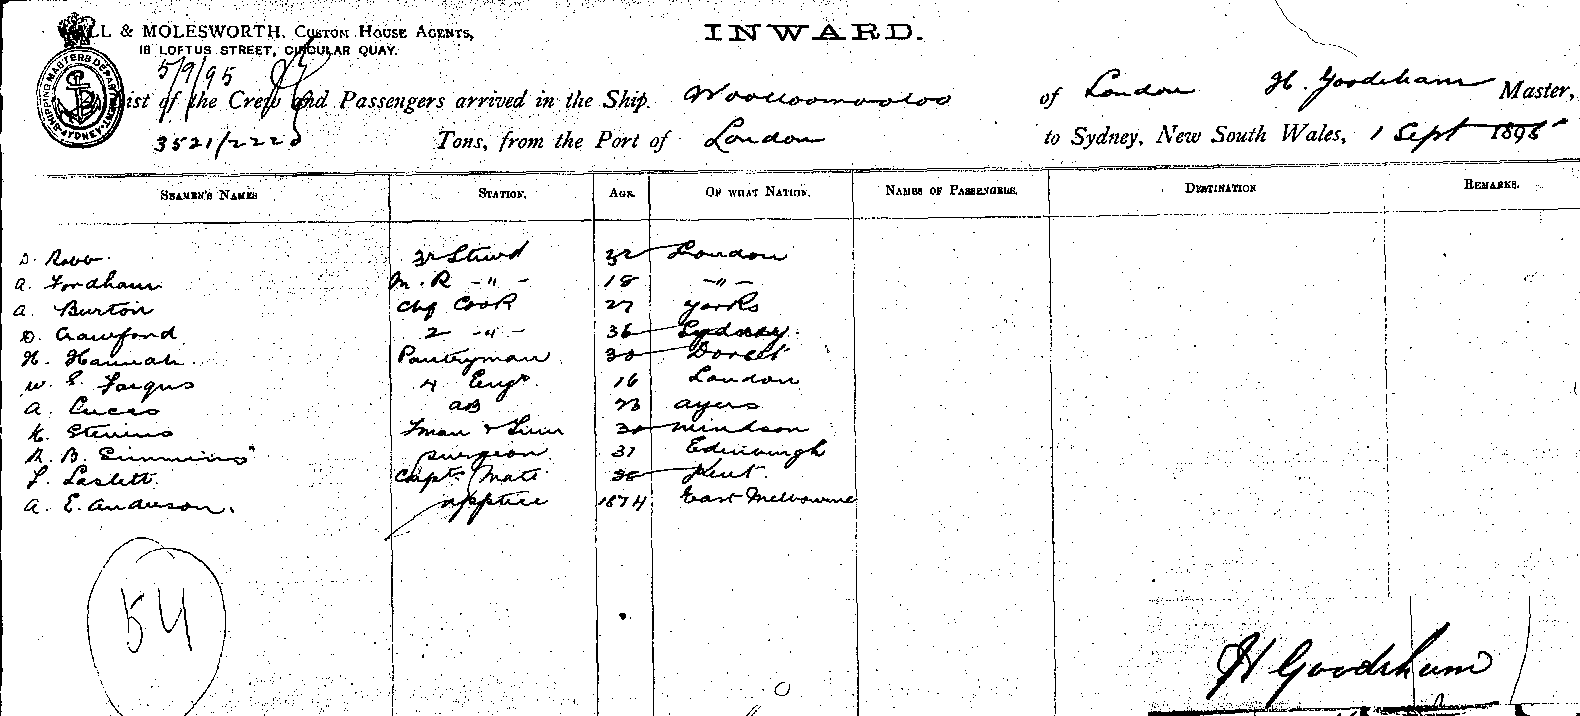 LL & MOLESWORTH, Custom House Agents,
18 LOFTUS STREET, CIRCULAR QUAY.
INWARD.
5/9/95
SHIPPING MASTERS DEPARTMENT SYDNEY
List of the Crew and Passengers arrived in the Ship. Woolloomooloo of London H. Goodrham Master,
3521/2223 Tons, from the Port of London to Sydney, New South Wales, 1 Sept 1895
Seamen's Names Station. Age. Of what Nation. Names of Passengers. Destination Remarks.
D. Robb 3r Stewd 32 London
A. Fordham M. R -"- 18 -"-
A. Burton Chf Cook 27 Yorks
D. Crawford 2 -"- 36 Sydney.
H. Hannah Pantryman 30 Dorset
W. E. Fargus 4 Engr. 16 London
A. Lucas AB 23 Ayers
H. Stevens 30
R. B. Simmins Surgeon 37 Edinburgh
F. Laslett. Capts Mate 38 Kent.
A. E. Anderson. Apptice 1874 East Melbourne
54
H Goodrham